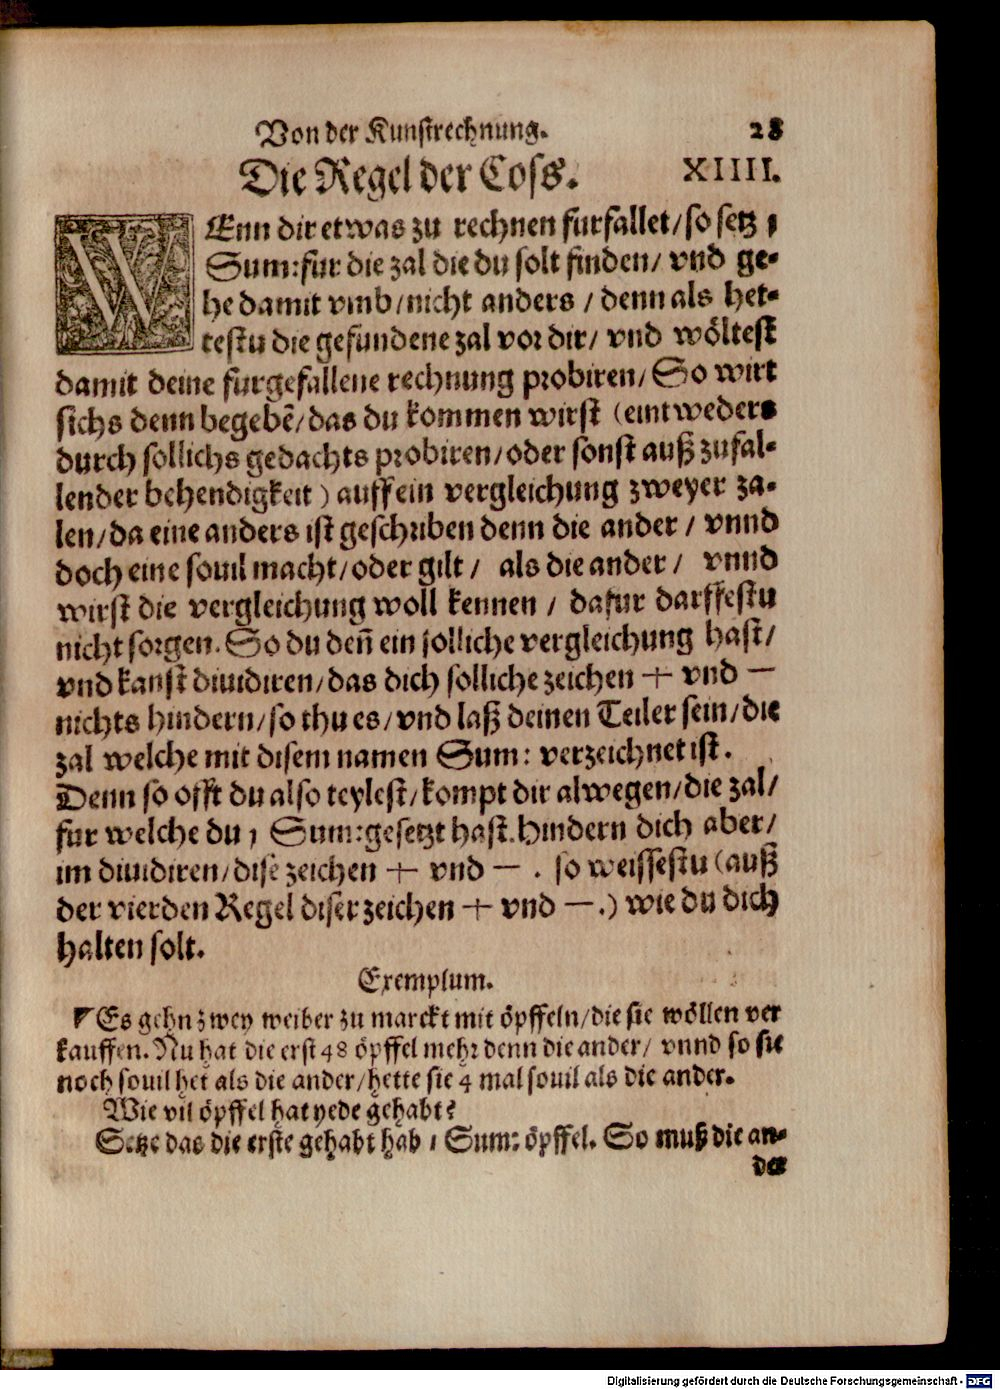 Von der Kunstrechnung. 28
Die Regel der Coss. XIIII.
WEnn dir etwas zu rechnen furfallet/ so setz 1
Sum: fur die zal die du solt finden/ vnd ge-
he damit vmb/ nicht anders / denn als het-
testu die gefundene zal vor dir/ vnd wöltest
damit deine furgefallene rechnung probiren/ So wirt
sichs denn begebẽ/ das du kommen wirst (eintweders
durch sollichs gedachts probiren/ oder sonst auß zufal-
lender behendigkeit) auff ein vergleichung zweyer za-
len/ da eine anders ist geschriben denn die ander / vnnd
doch eine souil macht/ oder gilt / als die ander / vnnd
wirst die vergleichung woll kennen / dafur darffestu
nicht sorgen. So du deñ ein solliche vergleichung hast/
vnd kanst diuidiren/ das dich solliche zeichen + vnd −
nichts hindern/ so thu es/ vnd laß deinen Teiler sein/ die
zal welche mit disem namen Sum: verzeichnet ist.
Denn so offt du also teylest/ kompt dir alwegen/ die zal/
fur welche du 1 Sum: gesetzt hast. Hindern dich aber/
im diuidiren/ dise zeichen + vnd − . so weissestu (auß
der vierden Regel diser zeichen + vnd −.) wie du dich
halten solt.
Exemplum.
Es gehn zwey weiber zu marckt mit öpffeln/ die sie wöllen ver
kauffen. Nu hat die erst 48 öpffel mehr denn die ander/ vnnd so sie
noch souil het als die ander/ hette sie 4 mal souil als die ander.
Wie vil öpffel hat yede gehabt?
Setze das die erste gehabt hab 1 Sum: öpffel. So muß die an-
der
Digitalisierung gefördert durch die Deutsche Forschungsgemeinschaft - DFG